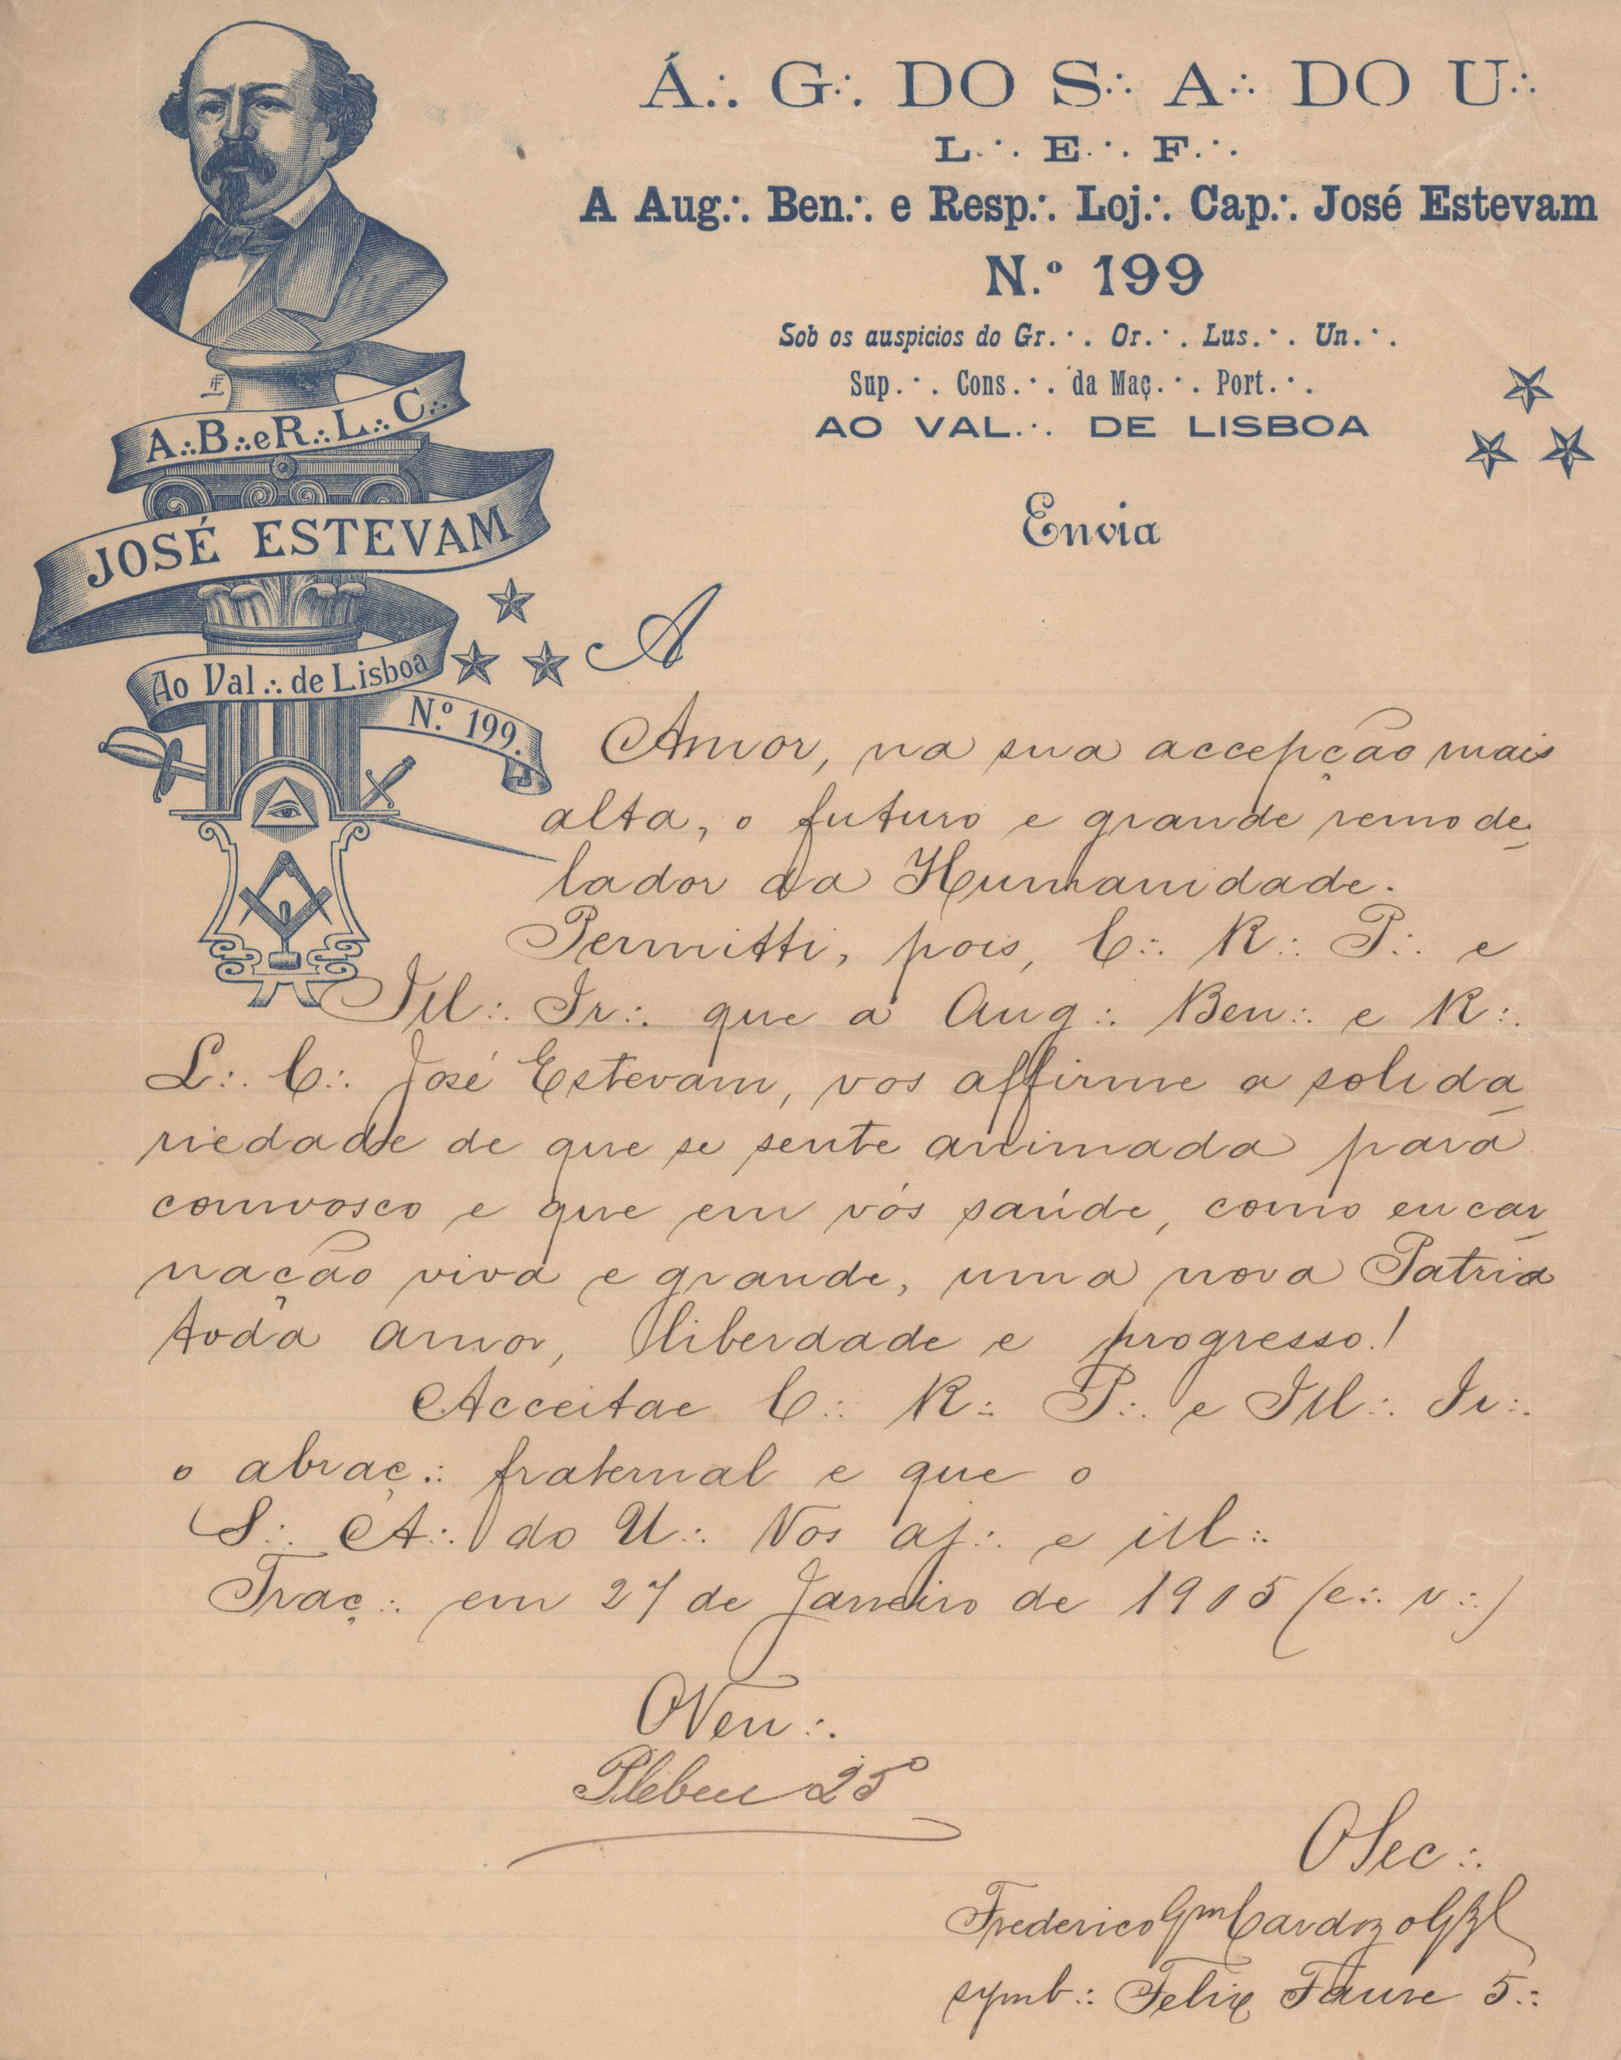 Á∴ G∴ DO S∴ A∴ DO U∴
L∴ E∴ F∴
A Aug∴ Ben∴ e Resp∴ Loj∴ Cap∴ José Estevam
N.º 199
Sob os auspicios do Gr∴ Or∴ Lus∴ Un∴
Sup∴ Cons∴ da Maç∴ Port∴
AO VAL∴ DE LISBOA
Envia
A∴B∴eR∴L∴C∴
JOSÉ ESTEVAM
Ao Val∴ de Lisboa
N.º 199.
A
Amor, na sua accepção mais
alta, o futuro e grande remode
lador da Humanidade.
Permitti, pois, C∴ R∴ P∴ e
Ill∴ Ir∴ que a Aug∴ Ben∴ e R∴
L∴ C∴ José Estevam, vos affirme a solida
riedade de que se sente animada para
comvosco e que em vós saúde, como encar
nação viva e grande, uma nova Patria
toda amor, liberdade e progresso!
Acceitae C∴ R∴ P∴ e Ill∴ Ir∴
o abraç∴ fraternal e que o
S∴ A∴ do U∴ Vos aj∴ e ill∴
Traç∴ em 27 de Janeiro de 1905 (e∴ v∴)
O Ven∴
Plebeu 25º
O Sec∴
Frederico Gm Cardozo
symb∴ Felix Faure 5∴